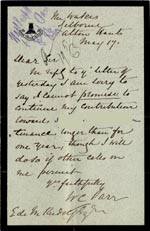 The Wakes
Selborne
Alton Hants
May 17.
Dear Sir
In reply to yr letter of
yesterday I am sorry to
say I cannot promise to
continue my contribution
towards
tenance longer than for
one year, though I will
do so if other calls on
me permit
Yrs faithfully
W C Parr
E de M Rudolf Esq